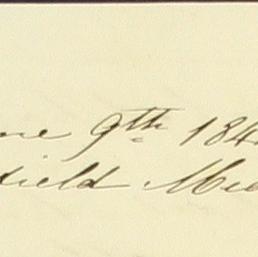 ne 9th 184
field Me